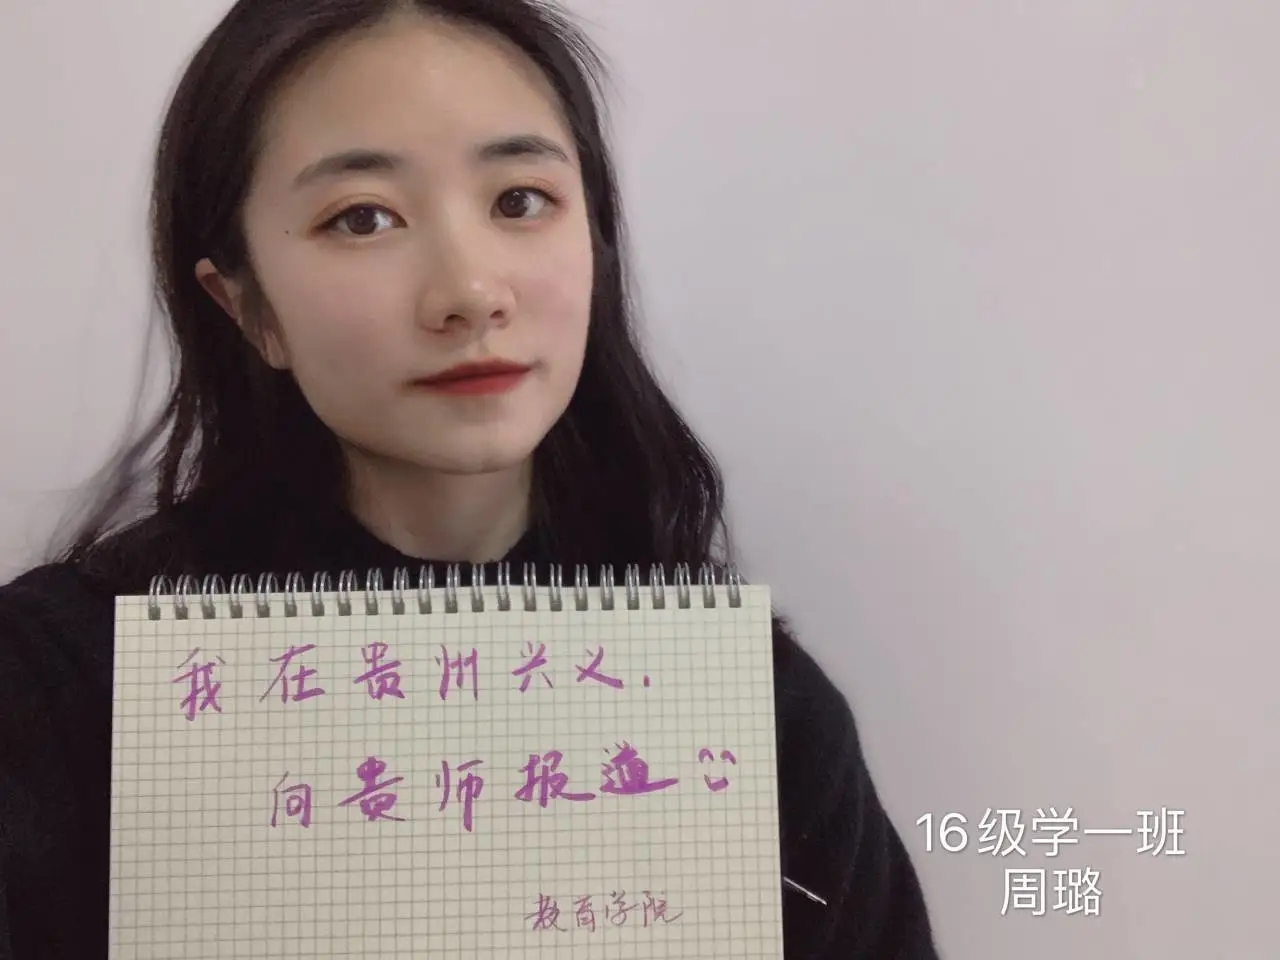 我在贵州兴义.
向贵师报道
教育学院
16级学一班
周璐